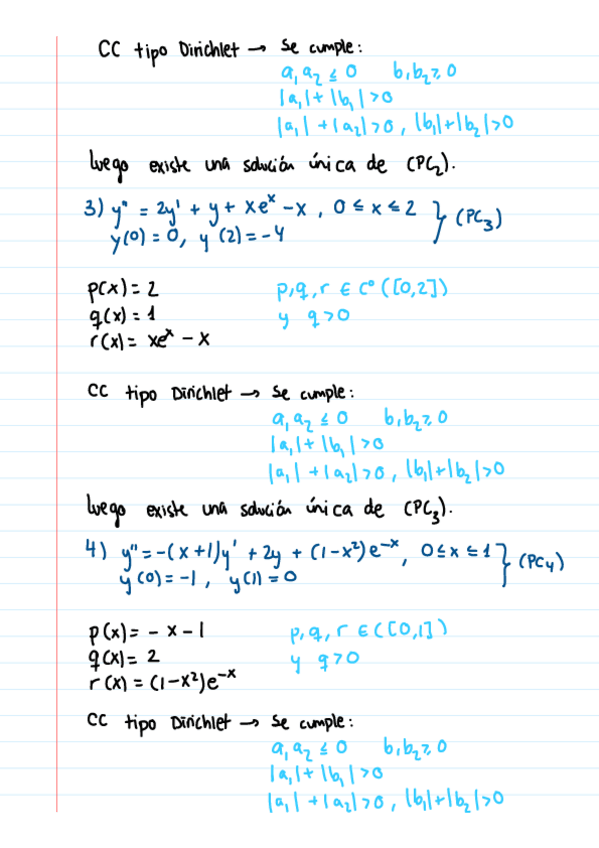 CC tipo Dirichlet → Se cumple:
a₁a₂ ≤ 0   b₁b₂ ≥ 0
|a₁| + |b₁| > 0
|a₁| + |a₂| > 0, |b₁| + |b₂| > 0
luego existe una solución única de (PC₂).
3) y'' = 2y' + y + xeˣ - x, 0 ≤ x ≤ 2 } (PC₃)
y(0) = 0, y(2) = -4
p(x) = 2   p, q, r ∈ C⁰([0,2])
q(x) = 1   y q > 0
r(x) = xeˣ - x
CC tipo Dirichlet → Se cumple:
a₁a₂ ≤ 0   b₁b₂ ≥ 0
|a₁| + |b₁| > 0
|a₁| + |a₂| > 0, |b₁| + |b₂| > 0
luego existe una solución única de (PC₃).
4) y'' = -(x+1)y' + 2y + (1-x²)e⁻ˣ, 0 ≤ x ≤ 1 } (PC₄)
y(0) = -1, y(1) = 0
p(x) = -x-1   p, q, r ∈ C([0,1])
q(x) = 2   y q > 0
r(x) = (1-x²)e⁻ˣ
CC tipo Dirichlet → Se cumple:
a₁a₂ ≤ 0   b₁b₂ ≥ 0
|a₁| + |b₁| > 0
|a₁| + |a₂| > 0, |b₁| + |b₂| > 0